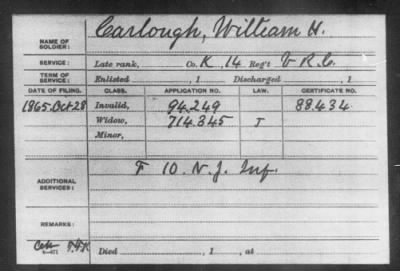 NAME OF SOLDIER: Carlough, William H.
SERVICE: Late rank, Co. K, 14 Reg't V.R.C.
TERM OF SERVICE: Enlisted , 1 Discharged , 1
DATE OF FILING. CLASS. APPLICATION NO. LAW. CERTIFICATE NO.
1865. Oct. 28 Invalid, 94.249 88.434
Widow, 714.845 J
Minor,
ADDITIONAL SERVICES: F 10. N.J. Inf.
REMARKS:
Died , 1 , at